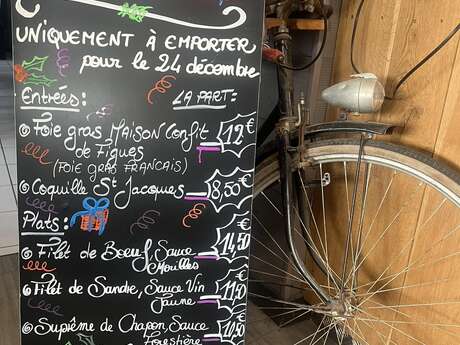 UNIQUEMENT À EMPORTER
pour le 24 décembre
Entrées: LA PART:
Foie gras MAISON Confit 12€
de Figues
(FOIE GRAS FRANCAIS)
Coquille St Jacques 18,50€
Plats:
Filet de Boeuf, Sauce 14,50€
Morilles
Filet de Sandre, Sauce Vin
Jaune
Suprême de Chapon, Sauce
Forestière